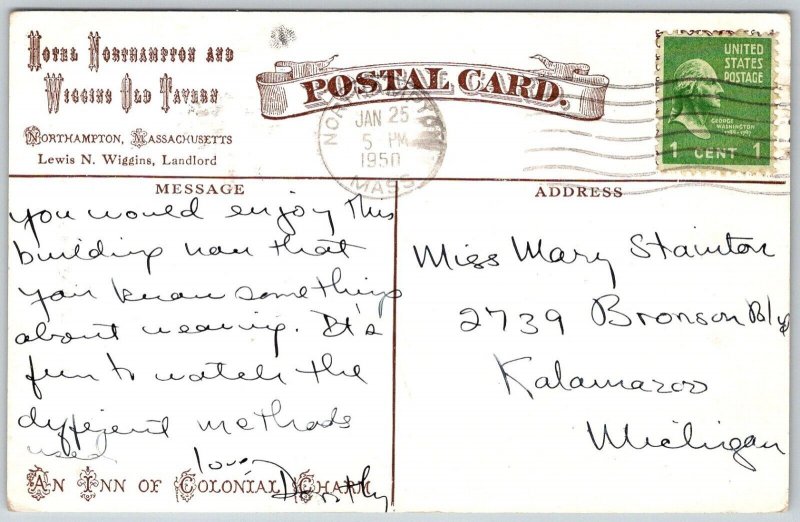 Hotel Northampton and
Wiggins Old Tavern
Northampton, Massachusetts
Lewis N. Wiggins, Landlord
POSTAL CARD.
JAN 25
5 PM
1950
MASS.
UNITED
STATES
POSTAGE
GEORGE
WASHINGTON
1 CENT 1
MESSAGE
you would enjoy this
building now that
you know something
about weaving. It's
fun to watch the
different methods
used
love,
Dorothy
An Inn of Colonial Charm
ADDRESS
Miss Mary Stainton
2739 Bronson Blvd
Kalamazoo
Michigan